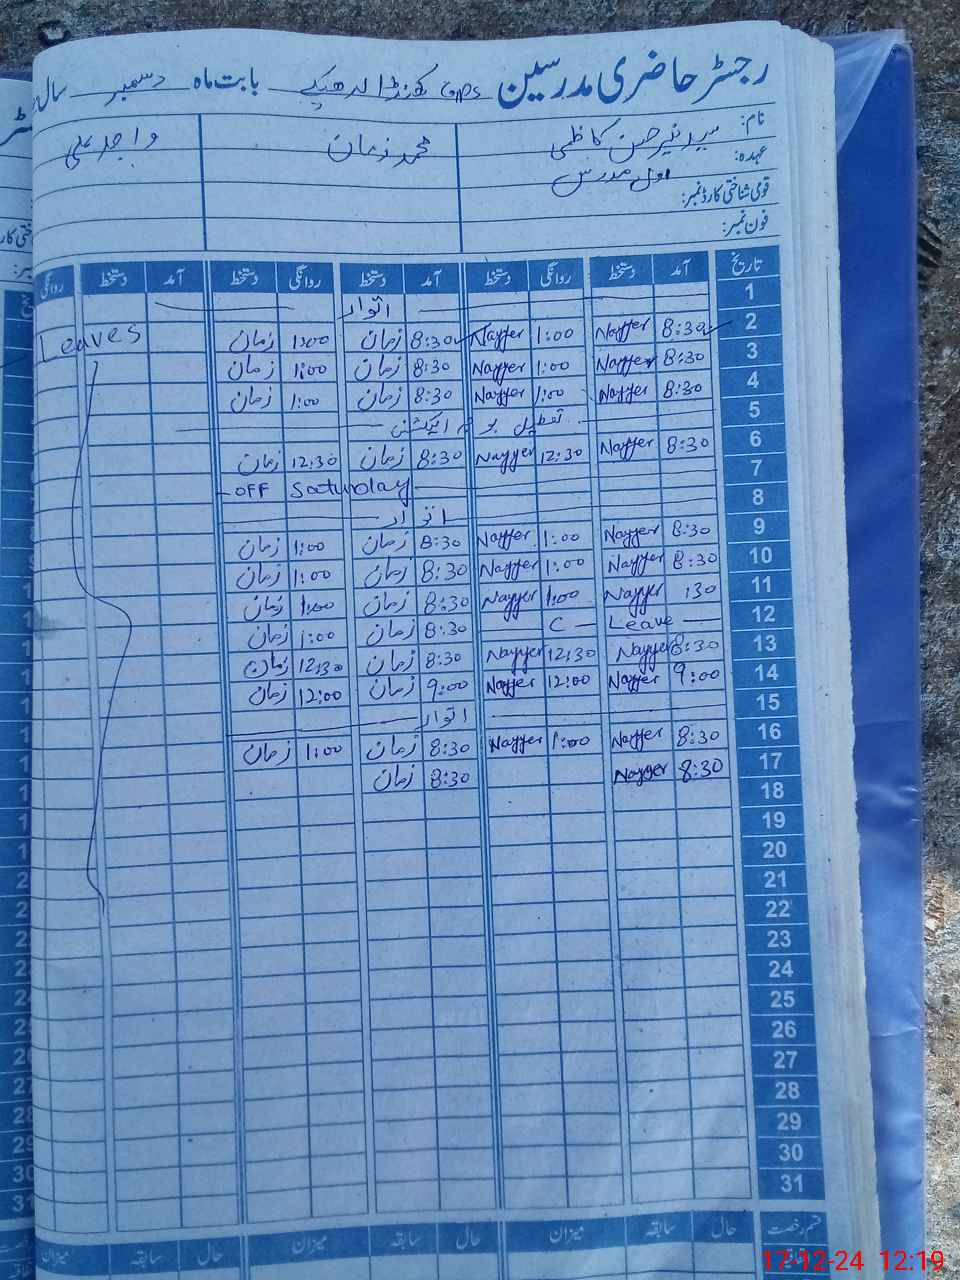 رجسٹر حاضری مدرسین GPS بابت ماہ دسمبر سال
نام: سید نیر حسن کاظمی محمد زمان واجد علی
عہدہ: اول مدرس
قومی شناختی کارڈ نمبر:
فون نمبر:
تاریخ آمد دستخط روانگی دستخط آمد دستخط روانگی دستخط آمد دستخط روانگی
1 اتوار
2 8:30 Nayyer 1:00 Nayyer 8:30 زمان 1:00 زمان Leaves
3 8:30 Nayyer 1:00 Nayyer 8:30 زمان 1:00 زمان
4 8:30 Nayyer 1:00 Nayyer 8:30 زمان 1:00 زمان
5 تعطیل بوجہ الیکشن
6 8:30 Nayyer 12:30 Nayyer 8:30 زمان 12:30 زمان
7 OFF Saturday
8 اتوار
9 8:30 Nayyer 1:00 Nayyer 8:30 زمان 1:00 زمان
10 8:30 Nayyer 1:00 Nayyer 8:30 زمان 1:00 زمان
11 :30 Nayyer 1:00 Nayyer 8:30 زمان 1:00 زمان
12 C - Leave 8:30 زمان 1:00 زمان
13 8:30 Nayyer 12:30 Nayyer 8:30 زمان 12:30 زمان
14 9:00 Nayyer 12:00 Nayyer 9:00 زمان 12:00 زمان
15 اتوار
16 8:30 Nayyer 1:00 Nayyer 8:30 زمان 1:00 زمان
17 8:30 Nayyer 8:30 زمان
18
19
20
21
22
23
24
25
26
27
28
29
30
31
قسم رخصت حال سابقہ میزان حال سابقہ میزان حال سابقہ میزان
17-12-24 12:19